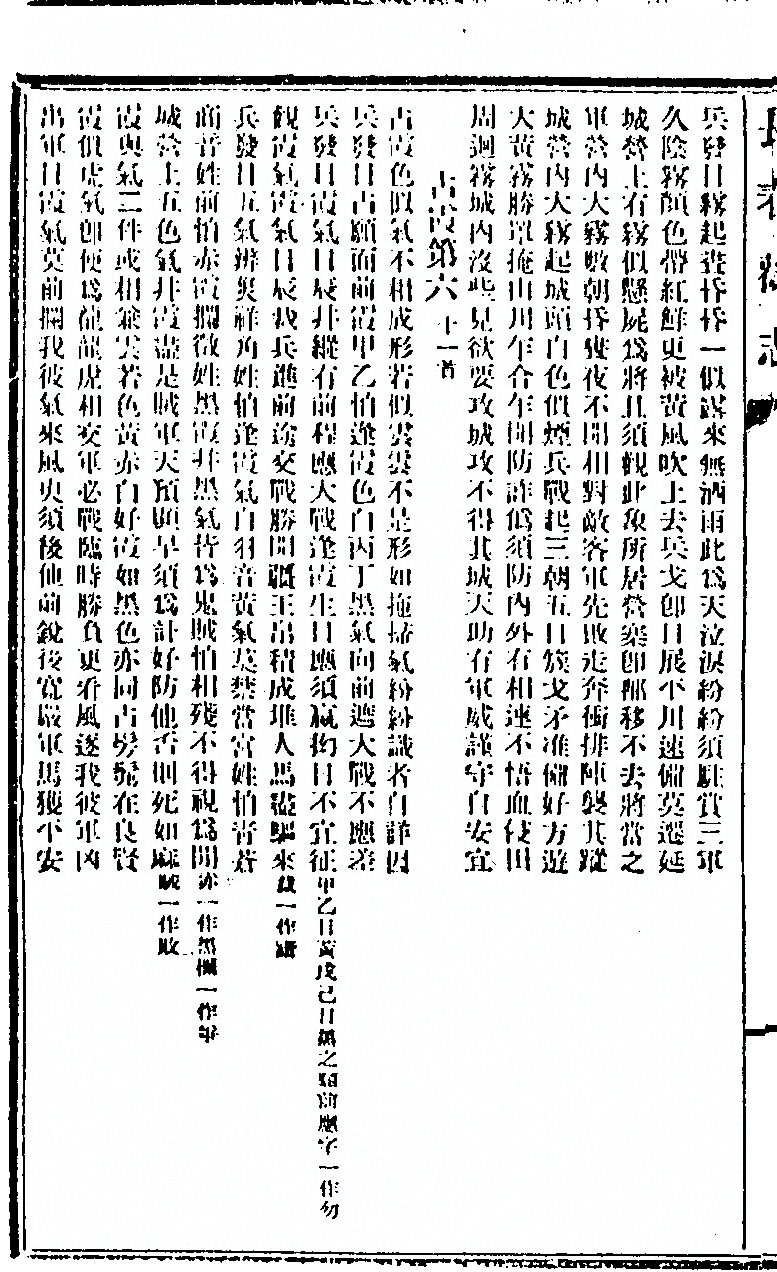 兵發日霧起晝昏昏一似露來無洒雨此為天泣淚紛紛須駐賞三軍
久陰霧顏色帶紅鮮更被黃風吹上去兵戈卽日展平川速備莫遷延
城營上有霧似懸屍為將且須觀此象所居營寨卽那移不去將當之
軍營內大霧數朝昏幾夜不開相對敵客軍先敗走奔衝排陣襲其蹤
城營內大霧起城頭白色似煙兵戰起三朝五日簇戈矛准備好方遊
大黃霧勝罩掩山川午合午開防詐偽須防內外有相連不悟血侵田
周迴霧城內沒些見欲要攻城攻不得其城天助有軍威謹守自安宜
占霞第六十一首
占霞色似氣不相成形若似雲雲不是形如拖掃氣紛紛識者自詳因
兵發日占願面前霞甲乙怕逢霞色白丙丁黑氣向前遮大戰不應差
兵發日霞氣日辰幷縱有前程應大戰逢霞生日應須贏 日不宜征甲乙日黃戊己日 之 前應 一作勿
觀霞氣霞氣日辰我兵進前途交戰勝開疆王帛積成堆人馬 驅來 一作
兵發日五氣辨災祥角姓怕逢霞氣白羽音黃氣莫禁當宮姓怕青蒼
商音姓前怕赤霞攔徵姓黑霞幷黑氣皆為鬼賊怕相殘不得視為閒赤一作黑攔一作
城營上五色氣幷霞盡是賊軍天預顯早須為計好防他否則死如麻賊一作敗
霞與氣二件或相兼雲若色黃赤白好霞如黑色亦同占勞 在良賢
霞似虎氣卽便為龍龍虎相交軍必戰臨時勝負更看風遂我彼軍凶
出軍日霞氣莫前攔我彼氣來風更須後他前銳後寬嚴軍馬獲平安